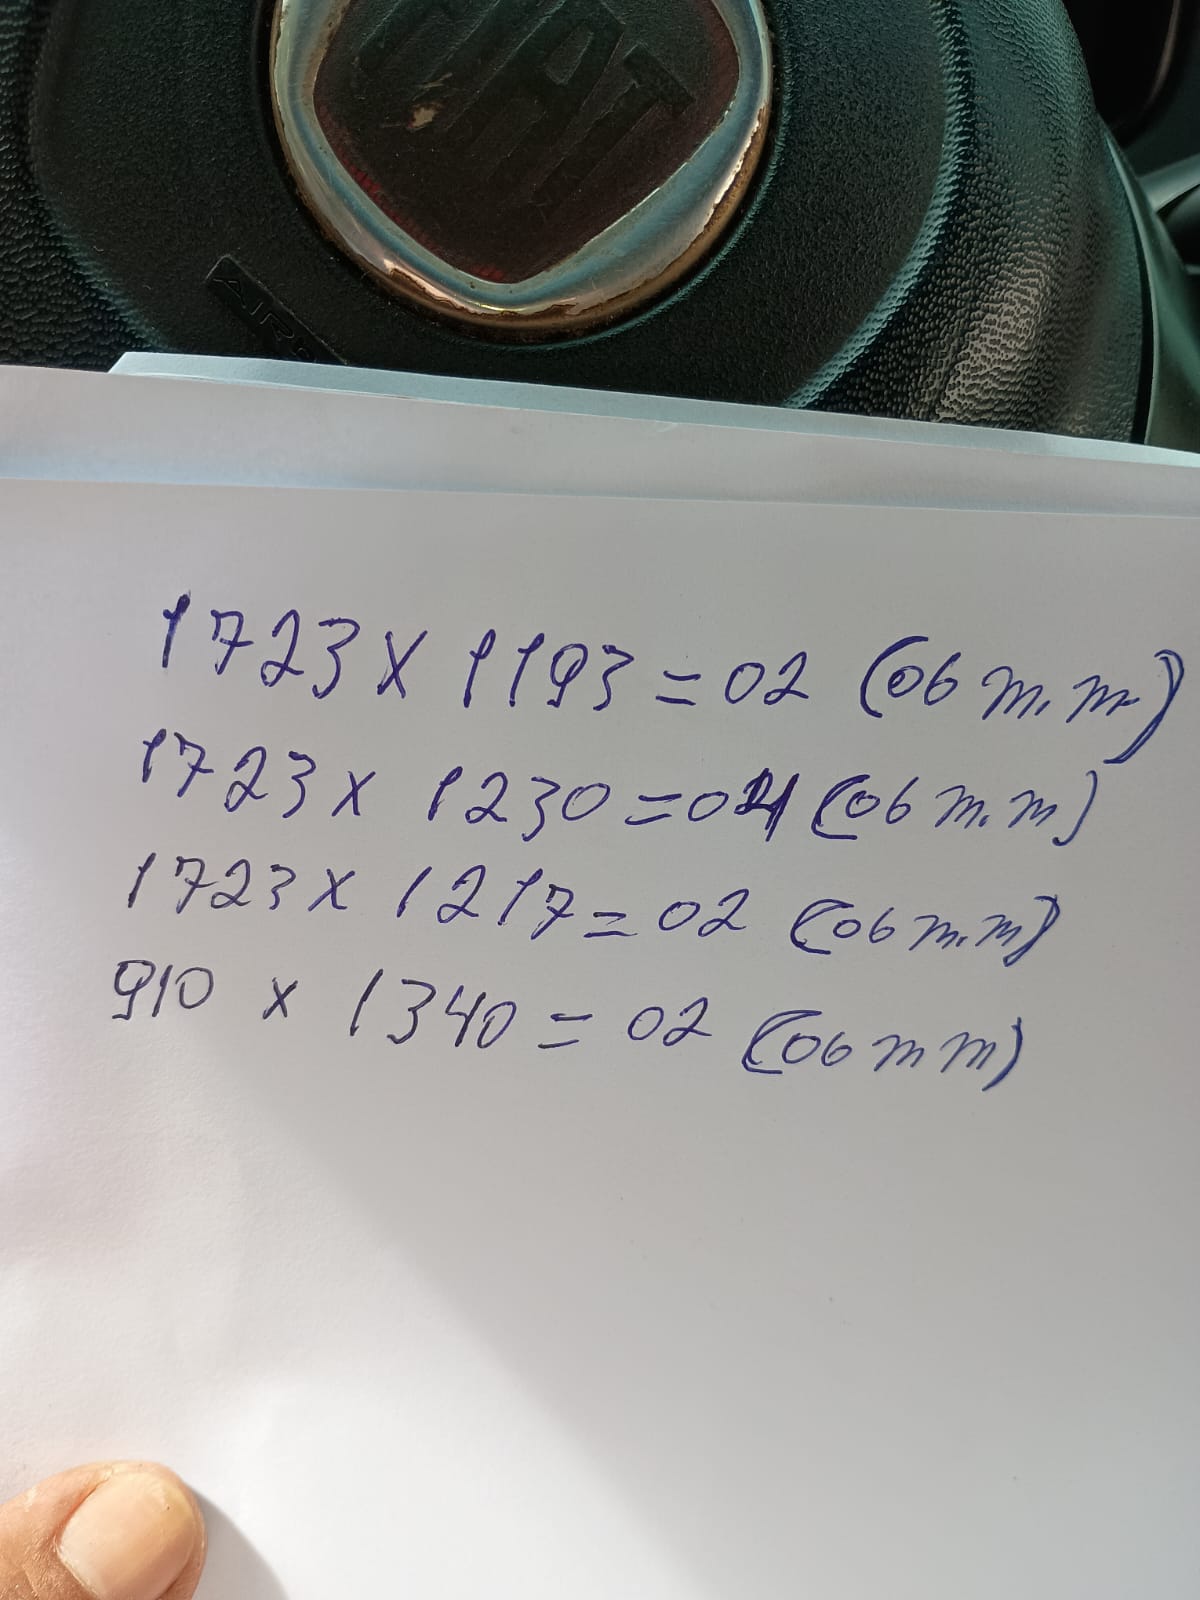 FIAT
AIRB
1723 X 1193 = 02 (06 m.m)
1723 x 1230 = 04 (06 m.m)
1723 X 1217 = 02 (06 m.m)
910 x 1340 = 02 (06 m m)